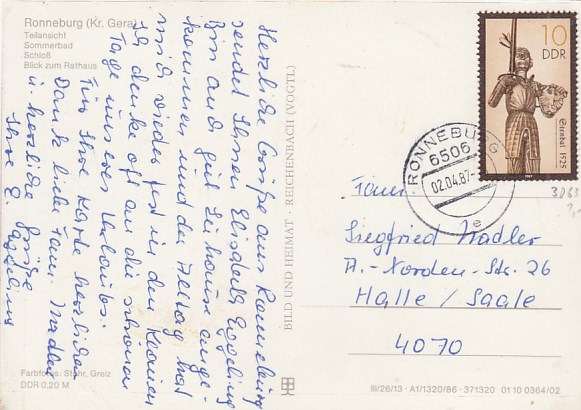 Ronneburg (Kr. Gera)
Teilansicht
Sommerbad
Schloß
Blick zum Rathaus
Herzliche Grüße aus Ronneburg
sendet Ihnen Elisabeth Eggeling
Bin auch gut zu Hause ange-
kommen und der Alltag hat
mich wieder fest in den Klauen
Ich denke oft an die schönen
Tage unseres Urlaubs.
Für Ihre Karte herzlichen
Dank liebe Fam. Nadler
u. herzliche Grüße
Ihre E. Eggeling
Farbfotos: Stöhr, Greiz
DDR 0,20 M
BILD UND HEIMAT · REICHENBACH (VOGTL)
10
DDR
1525
RONNEBURG
6506
02.04.87
e
Fam.
Siegfried Nadler
A.-Norden-Str. 26
Halle / Saale
4070
III/26/13 · A1/1320/86 · 371320 01 10 0364/02